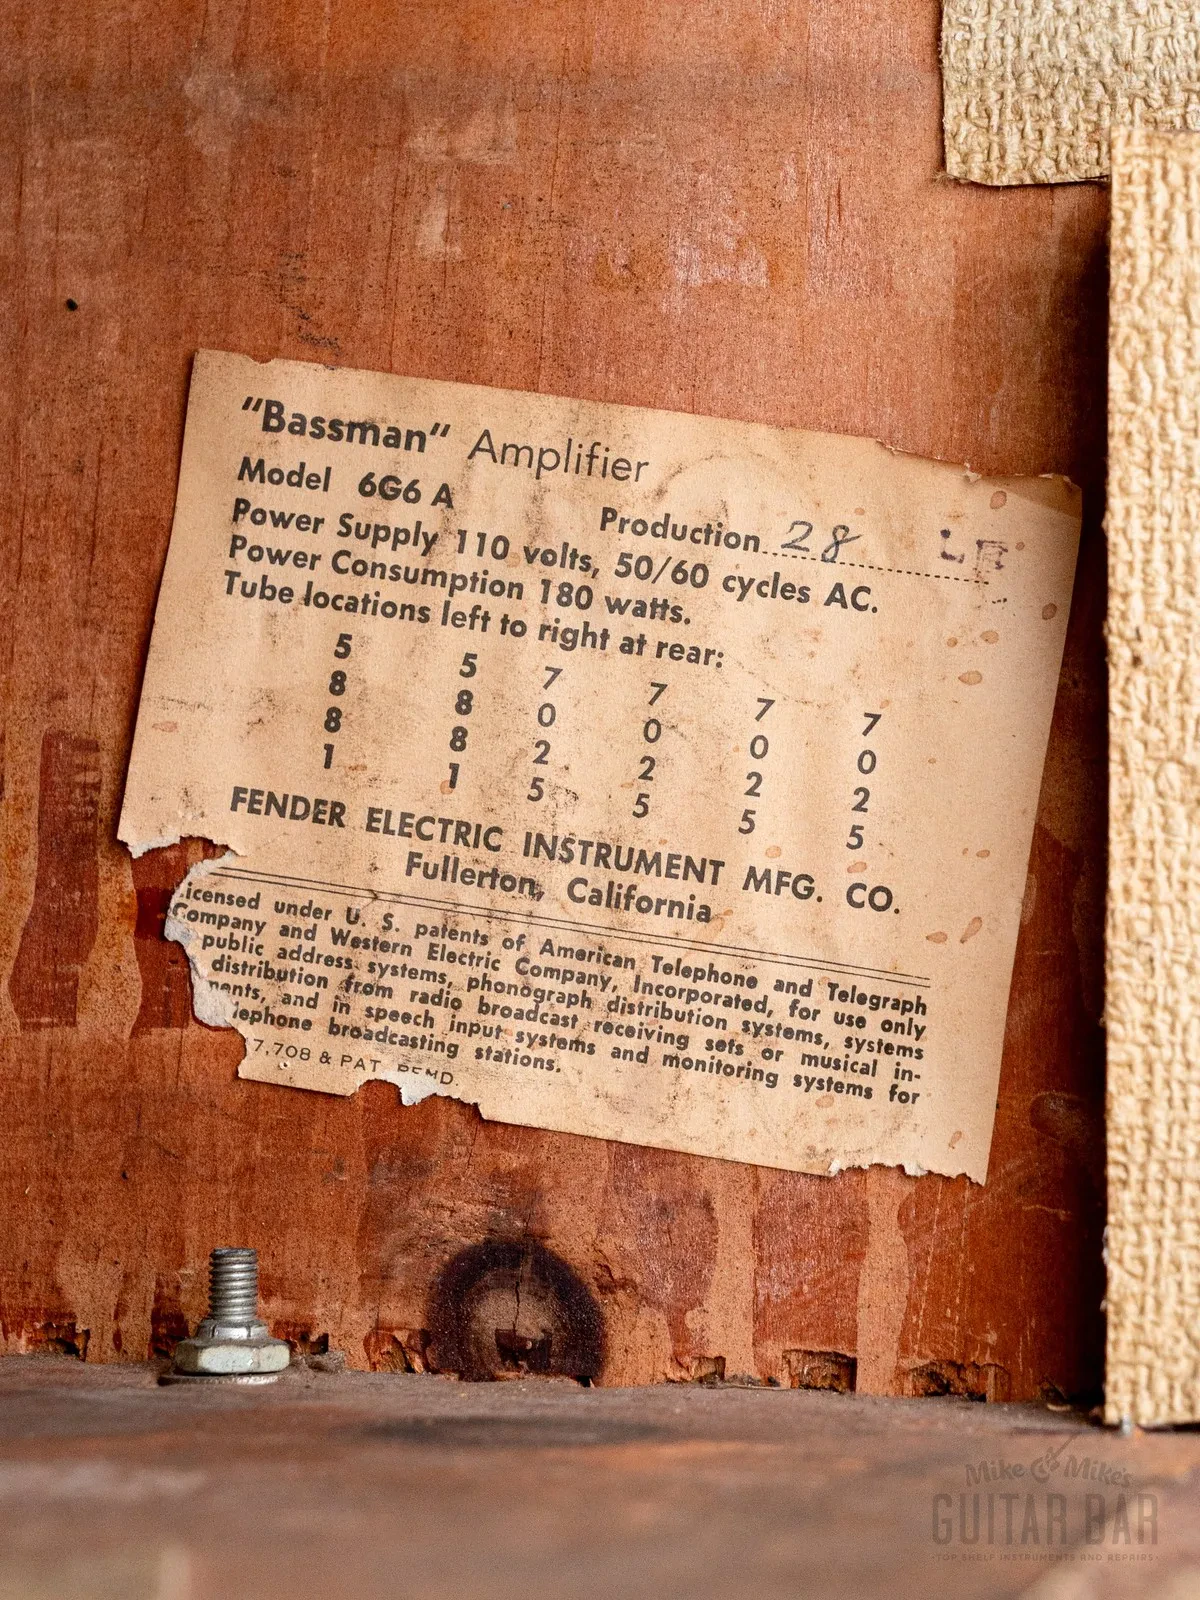 "Bassman" Amplifier
Model 6G6 A
Production 28 LE
Power Supply 110 volts, 50/60 cycles AC.
Power Consumption 180 watts.
Tube locations left to right at rear:
5 5 7 7 7 7
8 8 0 0 0 0
8 8 2 2 2 2
1 1 5 5 5 5
FENDER ELECTRIC INSTRUMENT MFG. CO.
Fullerton, California
icensed under U. S. patents of American Telephone and Telegraph
Company and Western Electric Company, Incorporated, for use only
public address systems, phonograph distribution systems, systems
distribution from radio broadcast receiving sets or musical in-
ments, and in speech input systems and monitoring systems for
lephone broadcasting stations.
7,708 & PAT. PEND.
Mike & Mike's
GUITAR BAR
TOP SHELF INSTRUMENTS AND REPAIRS